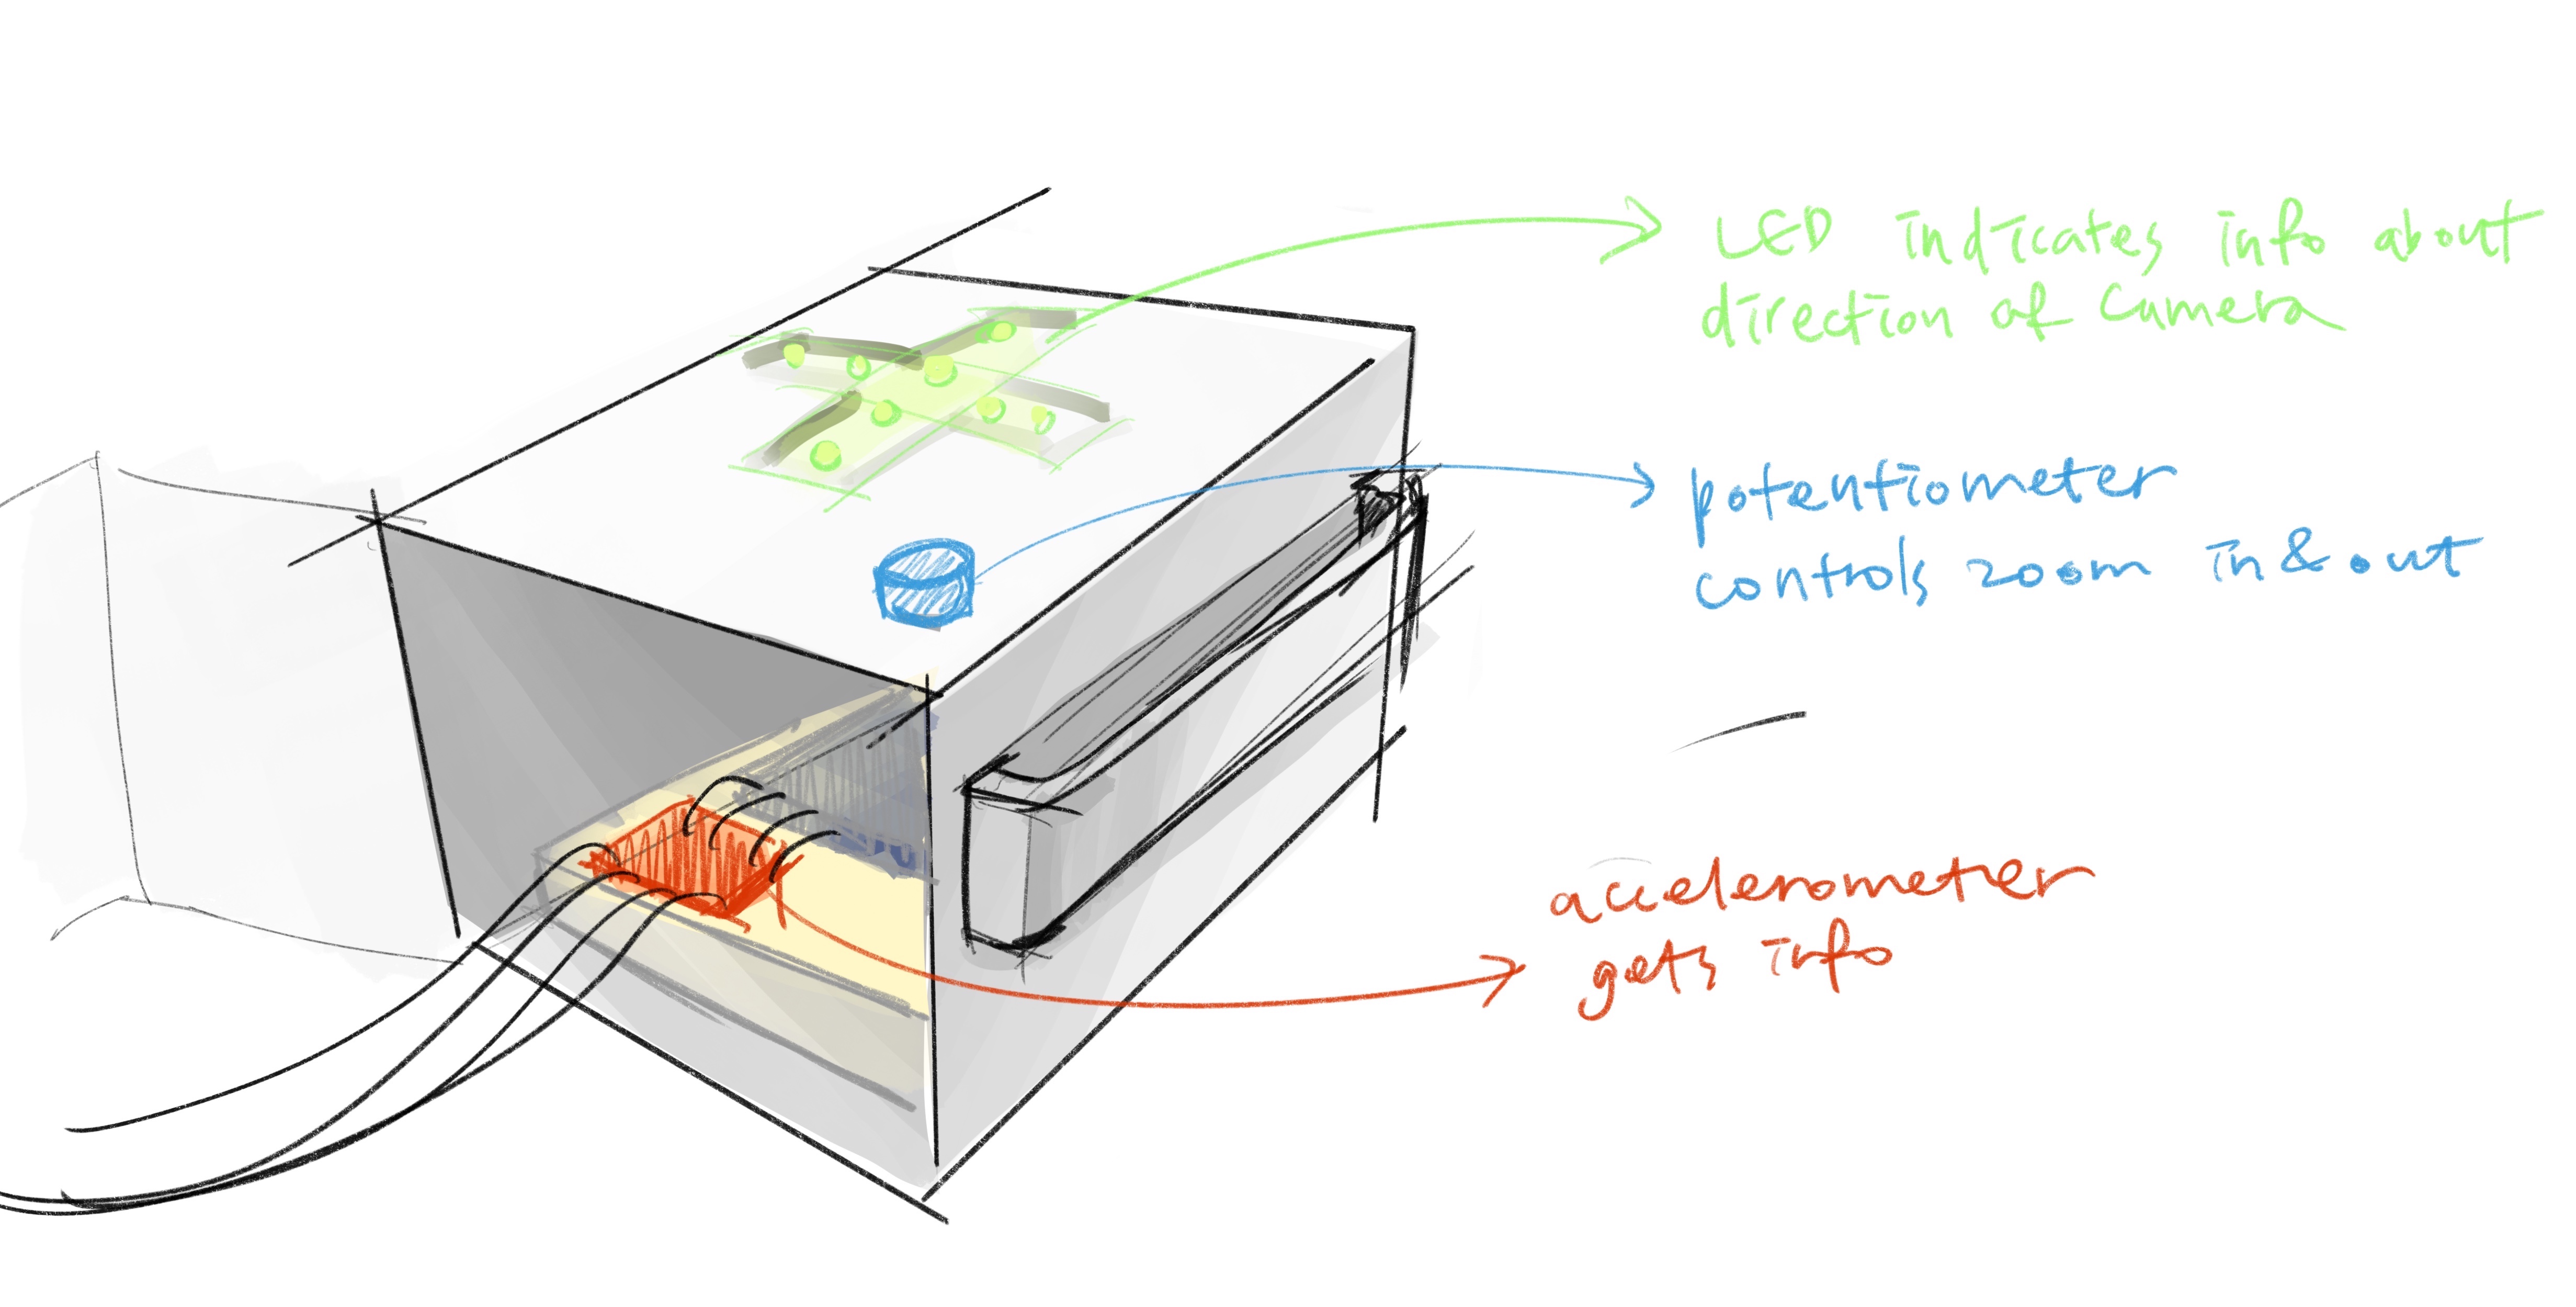 LED indicates info about
direction of camera
potentiometer
controls zoom in & out
accelerometer
gets info